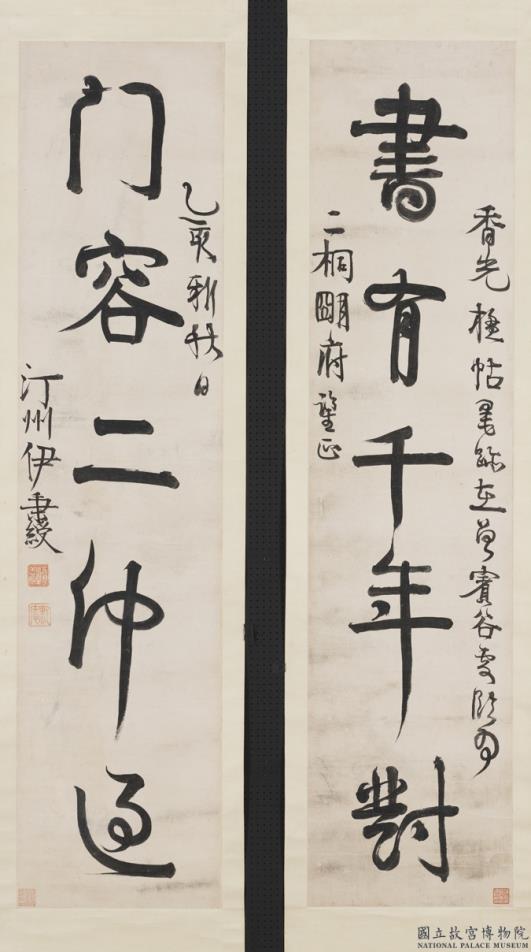 書有千年對
香光楹帖墨跡在曾賓谷處臨為
二桐明府鑒正
门容二仲過
乙亥新秋日
汀州伊秉綬
國立故宮博物院
NATIONAL PALACE MUSEUM